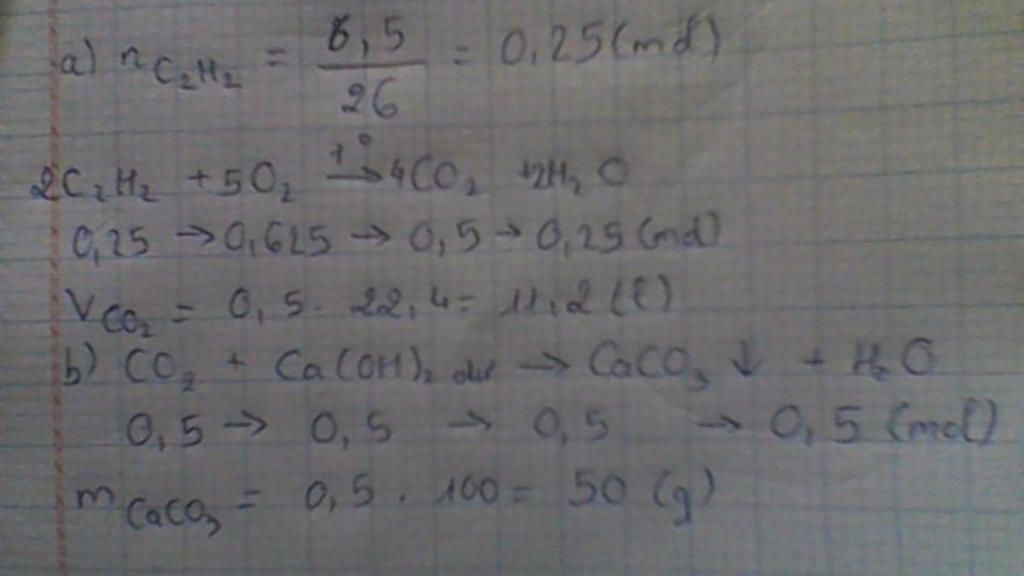 a) n C₂H₂ = 6,5 / 26 = 0,25 (mol)
2C₂H₂ + 5O₂ t° → 4CO₂ + 2H₂O
0,25 → 0,625 → 0,5 → 0,25 (mol)
V CO₂ = 0,5 . 22,4 = 11,2 (l)
b) CO₂ + Ca(OH)₂ dư → CaCO₃ ↓ + H₂O
0,5 → 0,5 → 0,5 → 0,5 (mol)
m CaCO₃ = 0,5 . 100 = 50 (g)